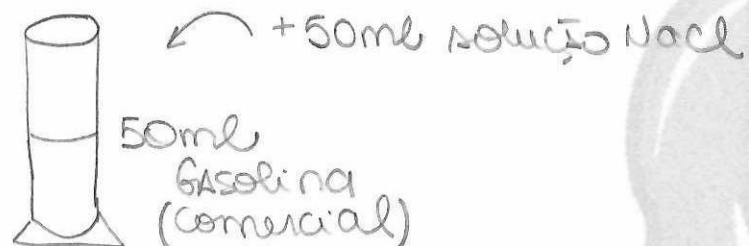 +50ml solução NaCl
50ml
GASolina
(comercial)